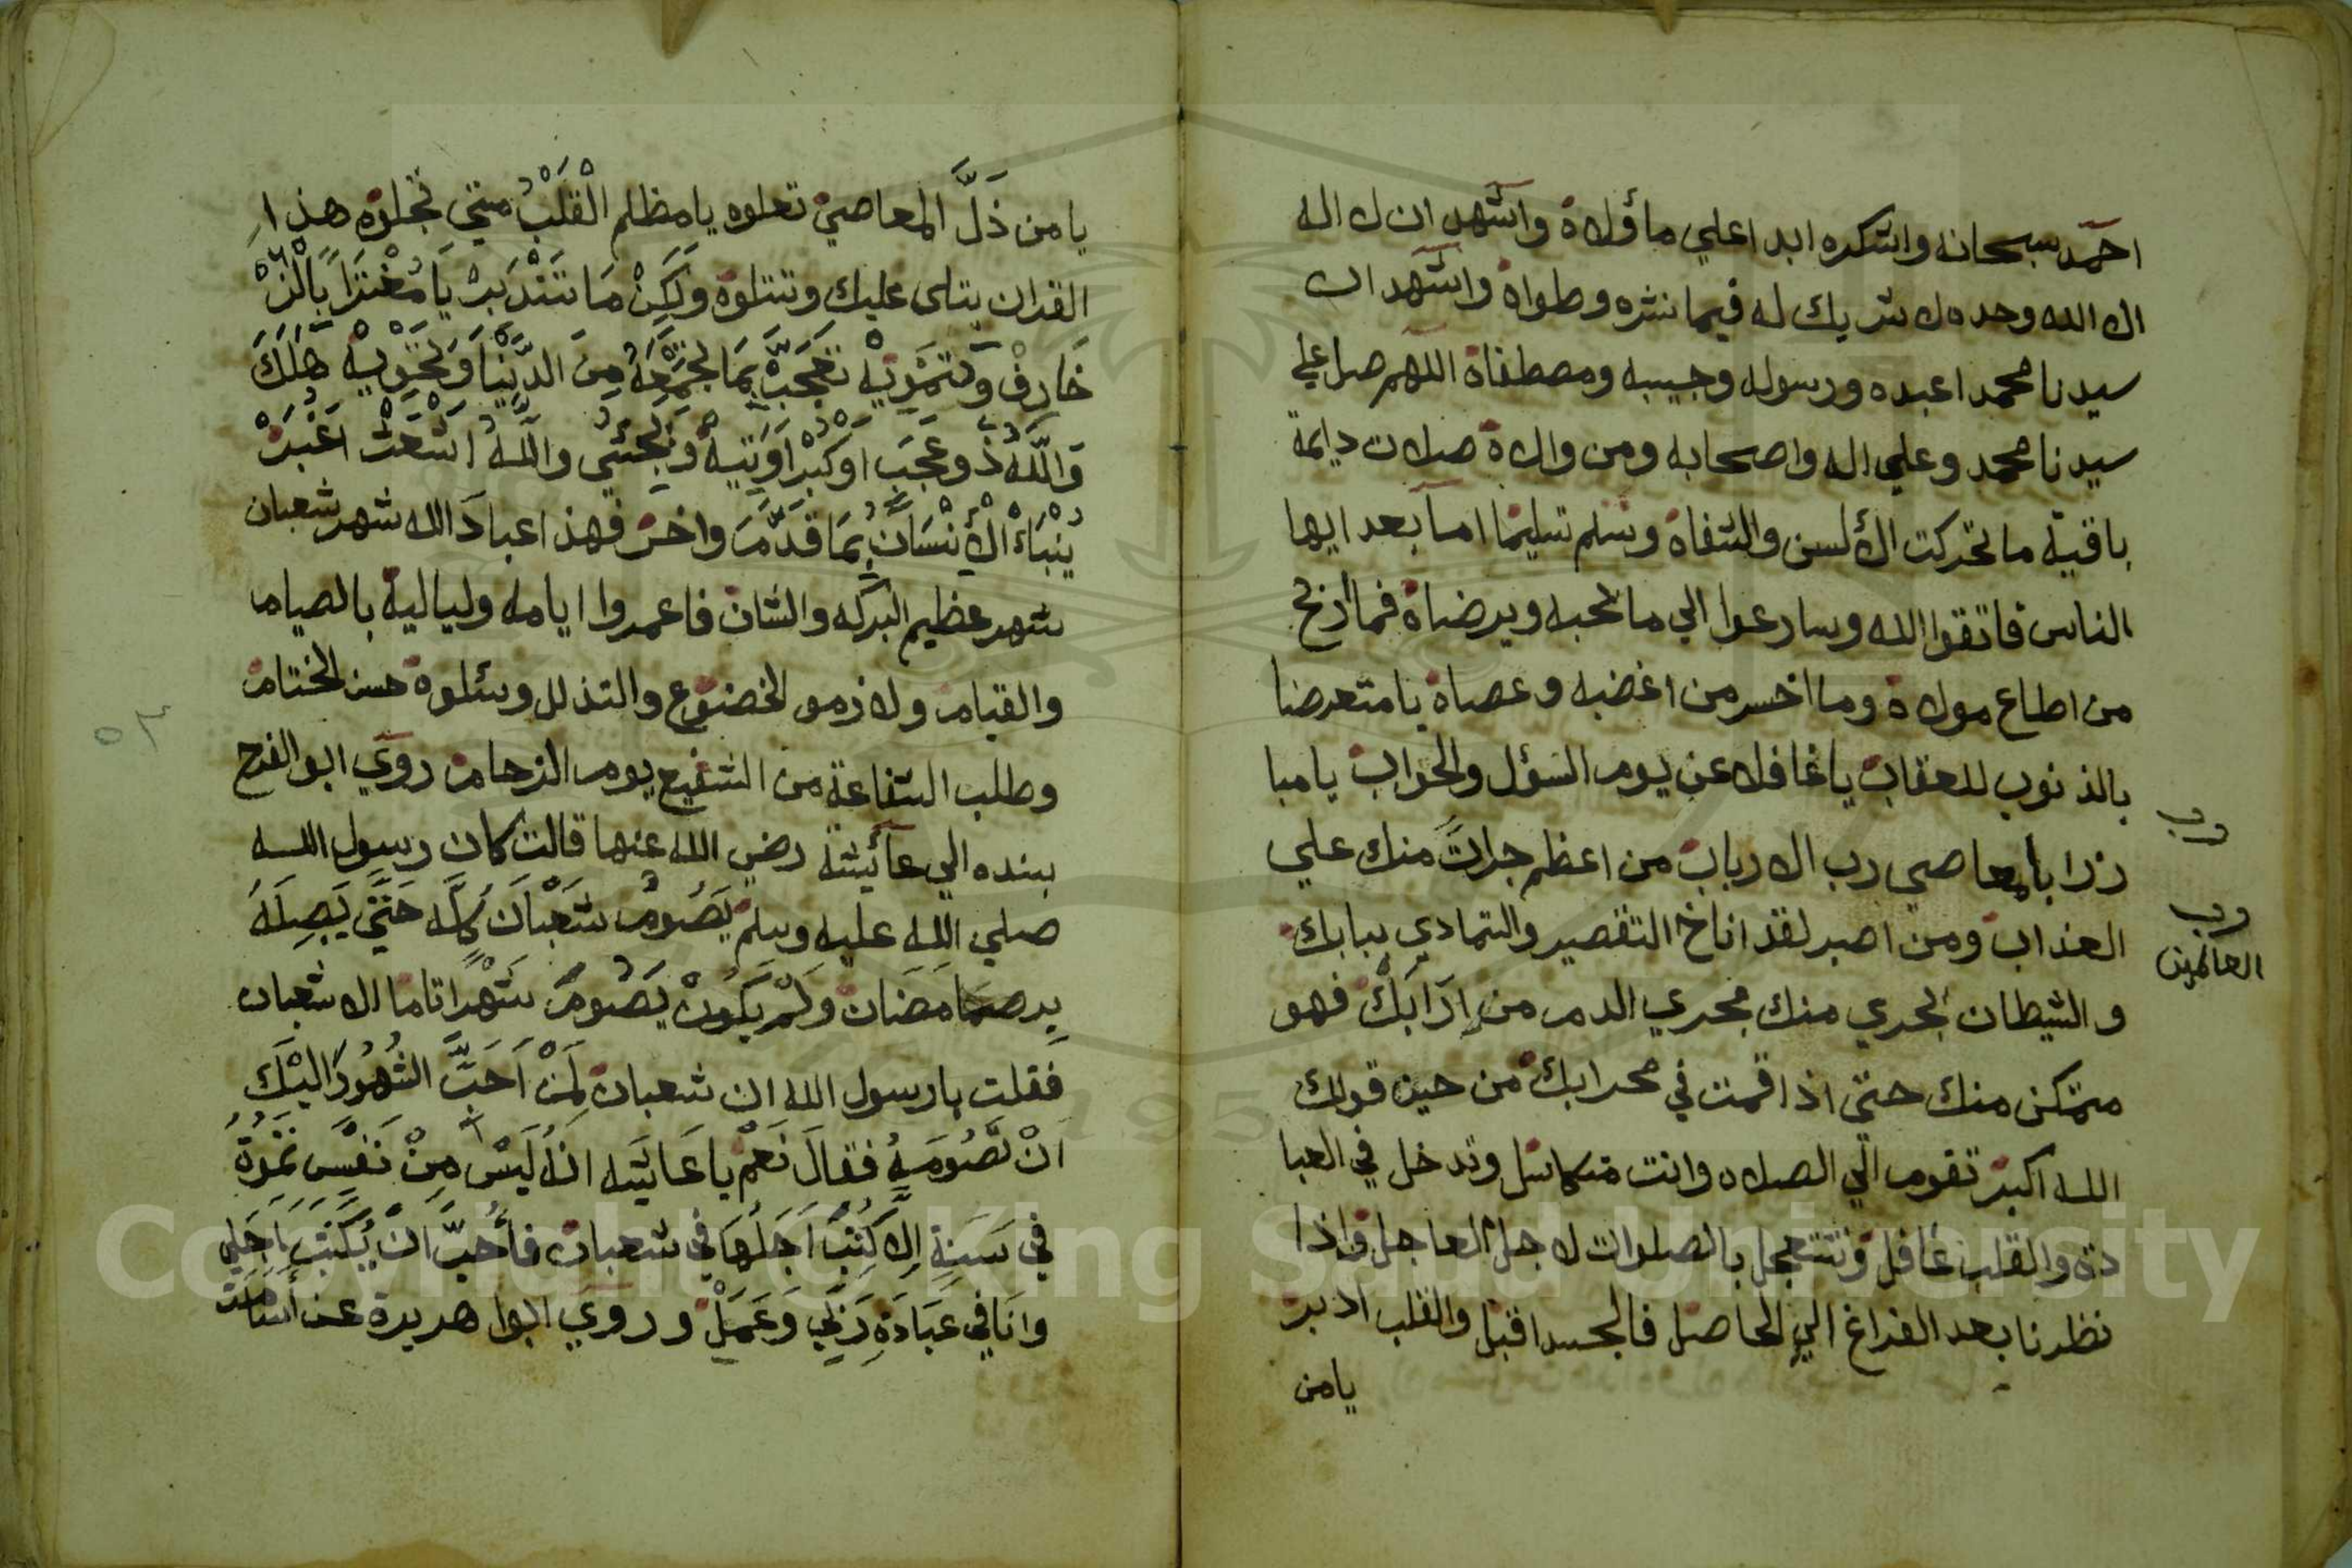 احمد سبحانه واشكره ابدا علي ما ؤلاه واشهد ان لا اله
الا الله وحده لا شريك له فيما نشره وطواه واشهد ان
سيدنا محمدا عبده ورسوله وحبيبه ومصطفاه اللهم صل علي
سيدنا محمد وعلي اله واصحابه ومن والاه صلات دايمة
باقية ما تحركت الألسن والشفاه وسلم تسليما اما بعد ايها
الناس فاتقوا الله وسارعوا الي ما يحبه ويرضاه فما اربح
من اطاع مولاه وما اخسر من اغضبه وعصاه يا متعرضا
بالذنوب للعقاب يا غافلا عن يوم السؤل والجواب يا مبا
رزا بالمعاصي رب الارباب من اعظم جرات منك علي
العذاب ومن اصبر لقد اناخ التقصير والتمادي ببابك
والشيطان يجري منك مجري الدم من ارابك فهو
متمكن منك حتى اذا قمت في محرابك من حين قولك
الله اكبر تقوم الي الصلاه وانت متكاسل وتدخل في العبا
دة والقلب غافل وتتعجل بالصلوات لاجل العاجل واذا
نظرنا بعد الفراغ الي الحاصل فالجسد اقبل والقلب ادبر
يا من
رب
رب
العالمين
يا من ذل المعاصي تعلوه يا مظلم القلب متي تجلوه هذا
القران يتلى عليك وتتلوه ولكن ما تتدبر يا مغترا بالز
خارف وتمريه تعجب بما تجمعه من الدينا وتحويه هلك
والله ذو عجب او كبر اويتيه ويجئي والله اشعث اغبر
ينباء الأنسان بما قدم واخر فهذا عباد الله شهر شعبان
شهر عظيم البركه والشان فاعمروا ايامه ولياليه بالصيام
والقيام ولازمو الخضوع والتذلل وسئلوه حسن الختام
وطلب الشفاعة من الشفيع يوم الزحام روي ابو الفرح
بسنده الي عائيشة رضي الله عنها قالت كان رسول الله
صلي الله عليه وسلم يصوم شعبان كله حتي يصله
برمضان ولم يكون يصوم شهرا تاما الا شعبان
فقلت يا رسول الله ان شعبان لمن احب الشهور اليك
ان تصومه فقال نعم يا عائيشه انه ليس من نفس تموة
في سنة الا كتب اجلها في شعبان فأحب ان يكتب اجلي
وانا في عبادة ربي وعمل وروي ابوا هريرة عن